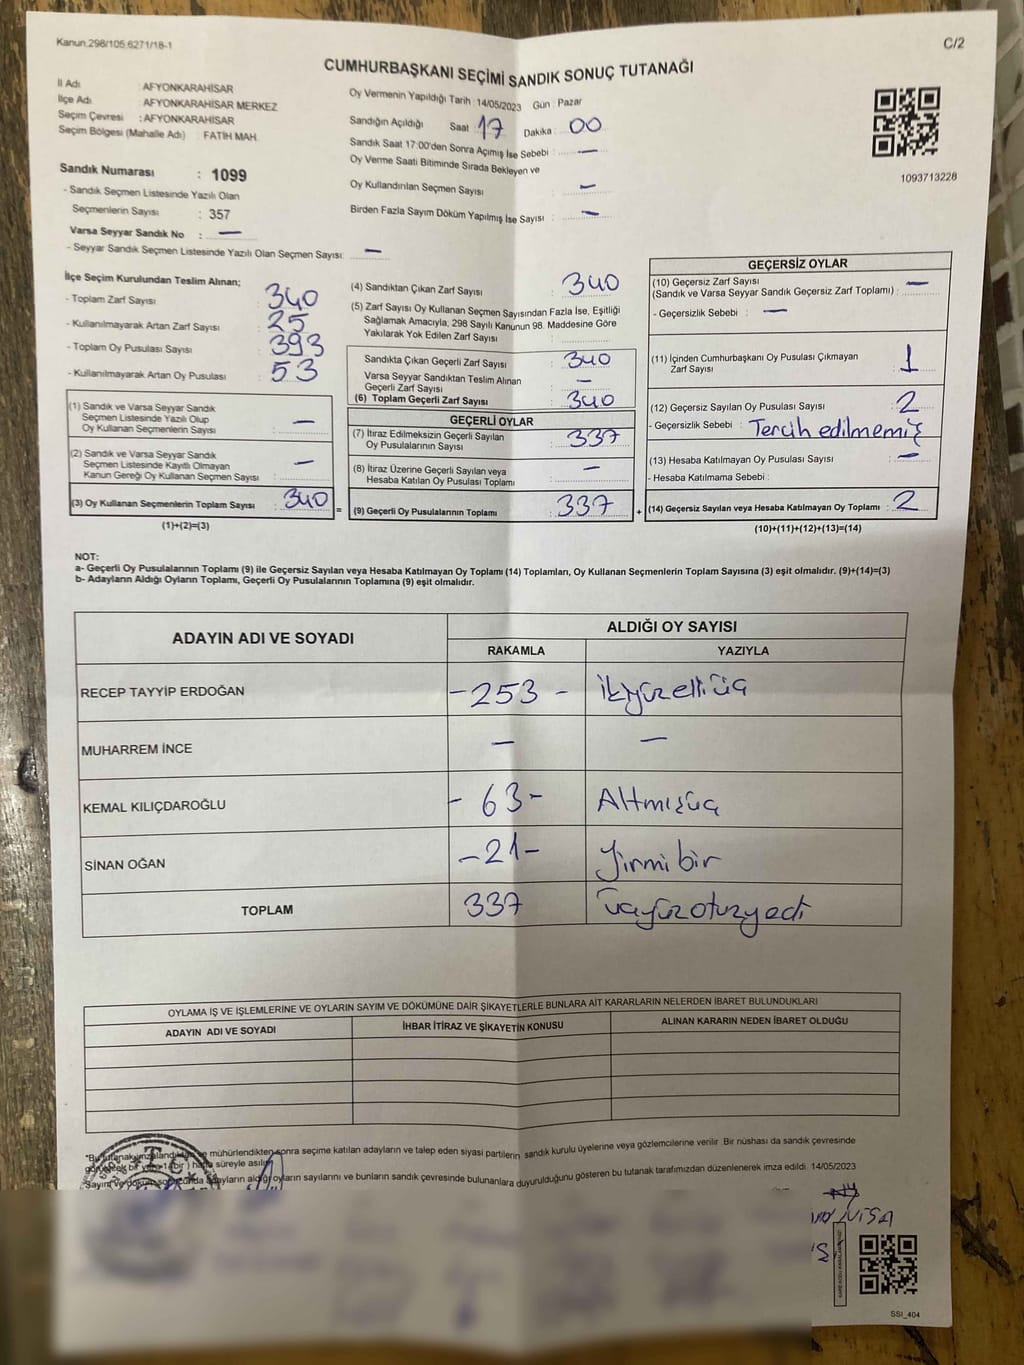 Kanun.298/105,6271/18-1
C/2
CUMHURBAŞKANI SEÇİMİ SANDIK SONUÇ TUTANAĞI
İl Adı : AFYONKARAHİSAR
İlçe Adı : AFYONKARAHİSAR MERKEZ
Seçim Çevresi : AFYONKARAHİSAR
Seçim Bölgesi (Mahalle Adı) : FATİH MAH.
Oy Vermenin Yapıldığı Tarih : 14/05/2023 Gün : Pazar
Sandığın Açıldığı Saat : 17 Dakika : 00
Sandık Saat 17:00'den Sonra Açımış İse Sebebi : —
Oy Verme Saati Bitiminde Sırada Bekleyen ve
Oy Kullandırılan Seçmen Sayısı : —
Birden Fazla Sayım Döküm Yapılmış İse Sayısı : —
1093713228
Sandık Numarası : 1099
- Sandık Seçmen Listesinde Yazılı Olan
Seçmenlerin Sayısı : 357
Varsa Seyyar Sandık No : —
- Seyyar Sandık Seçmen Listesinde Yazılı Olan Seçmen Sayısı: —
İlçe Seçim Kurulundan Teslim Alınan;
- Toplam Zarf Sayısı : 340
- Kullanılmayarak Artan Zarf Sayısı : 25
- Toplam Oy Pusulası Sayısı : 393
- Kullanılmayarak Artan Oy Pusulası : 53
(1) Sandık ve Varsa Seyyar Sandık
Seçmen Listesinde Yazılı Olup
Oy Kullanan Seçmenlerin Sayısı : —
(2) Sandık ve Varsa Seyyar Sandık
Seçmen Listesinde Kayıtlı Olmayan
Kanun Gereği Oy Kullanan Seçmen Sayısı : —
(3) Oy Kullanan Seçmenlerin Toplam Sayısı : 340
(1)+(2)=(3)
=
(4) Sandıktan Çıkan Zarf Sayısı : 340
(5) Zarf Sayısı Oy Kullanan Seçmen Sayısından Fazla İse, Eşitliği
Sağlamak Amacıyla, 298 Sayılı Kanunun 98. Maddesine Göre
Yakılarak Yok Edilen Zarf Sayısı :
Sandıkta Çıkan Geçerli Zarf Sayısı : 340
Varsa Seyyar Sandıktan Teslim Alınan
Geçerli Zarf Sayısı : —
(6) Toplam Geçerli Zarf Sayısı : 340
GEÇERLİ OYLAR
(7) İtiraz Edilmeksizin Geçerli Sayılan
Oy Pusulalarının Sayısı : 337
(8) İtiraz Üzerine Geçerli Sayılan veya
Hesaba Katılan Oy Pusulası Toplamı : —
(9) Geçerli Oy Pusulalarının Toplamı : 337
+
GEÇERSİZ OYLAR
(10) Geçersiz Zarf Sayısı
(Sandık ve Varsa Seyyar Sandık Geçersiz Zarf Toplamı) : —
- Geçersizlik Sebebi : —
(11) İçinden Cumhurbaşkanı Oy Pusulası Çıkmayan
Zarf Sayısı : 1
(12) Geçersiz Sayılan Oy Pusulası Sayısı : 2
- Geçersizlik Sebebi : Tercih edilmemiş
(13) Hesaba Katılmayan Oy Pusulası Sayısı : —
- Hesaba Katılmama Sebebi :
(14) Geçersiz Sayılan veya Hesaba Katılmayan Oy Toplamı : 2
(10)+(11)+(12)+(13)=(14)
NOT:
a- Geçerli Oy Pusulalarının Toplamı (9) ile Geçersiz Sayılan veya Hesaba Katılmayan Oy Toplamı (14) Toplamları, Oy Kullanan Seçmenlerin Toplam Sayısına (3) eşit olmalıdır. (9)+(14)=(3)
b- Adayların Aldığı Oyların Toplamı, Geçerli Oy Pusulalarının Toplamına (9) eşit olmalıdır.
ADAYIN ADI VE SOYADI
ALDIĞI OY SAYISI
RAKAMLA YAZIYLA
RECEP TAYYİP ERDOĞAN - 253 - İkiyüzelliüç
MUHARREM İNCE — —
KEMAL KILIÇDAROĞLU - 63 - Altmışüç
SİNAN OĞAN - 21 - Yirmi bir
TOPLAM 337 üçyüzotuzyedi
OYLAMA İŞ VE İŞLEMLERİNE VE OYLARIN SAYIM VE DÖKÜMÜNE DAİR ŞİKAYETLERLE BUNLARA AİT KARARLARIN NELERDEN İBARET BULUNDUKLARI
ADAYIN ADI VE SOYADI İHBAR İTİRAZ VE ŞİKAYETİN KONUSU ALINAN KARARIN NEDEN İBARET OLDUĞU
mühürlendikten sonra seçime katılan adayların ve talep eden siyasi partilerin sandık kurulu üyelerine veya gözlemcilerine verilir. Bir nüshası da sandık çevresinde
süreyle asılır.
adayların aldığı oyların sayılarını ve bunların sandık çevresinde bulunanlara duyurulduğunu gösteren bu tutanak tarafımızdan düzenlenerek imza edildi. 14/05/2023
T.C.
SSI_404